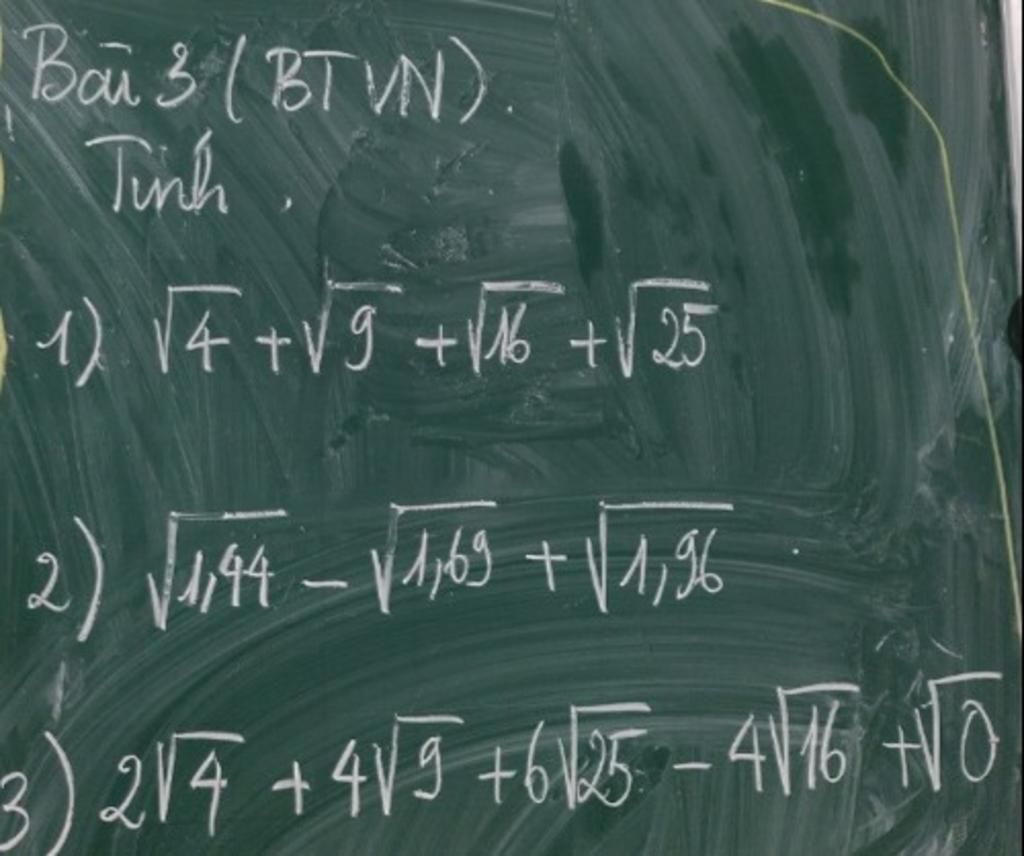 Bài 3 (BTVN).
Tính.
1) √4 + √9 + √16 + √25
2) √1,44 - √1,69 + √1,96
3) 2√4 + 4√9 + 6√25 - 4√16 + √0